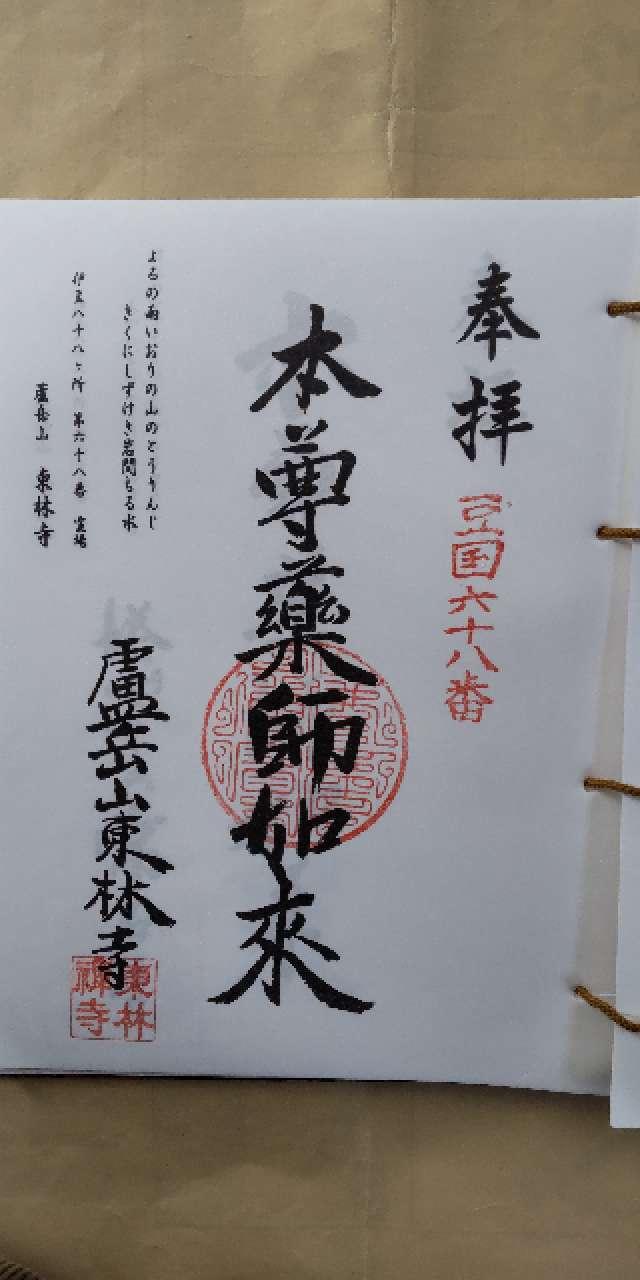 奉拝
豆国六十八番
本尊藥師如來
よるの雨いおりの山のとうりんじ
きくにしずけき岩間もる水
伊豆八十八ヶ所 第六十八番 霊場
盧岳山 東林寺
盧岳山東林寺
東林
禅寺